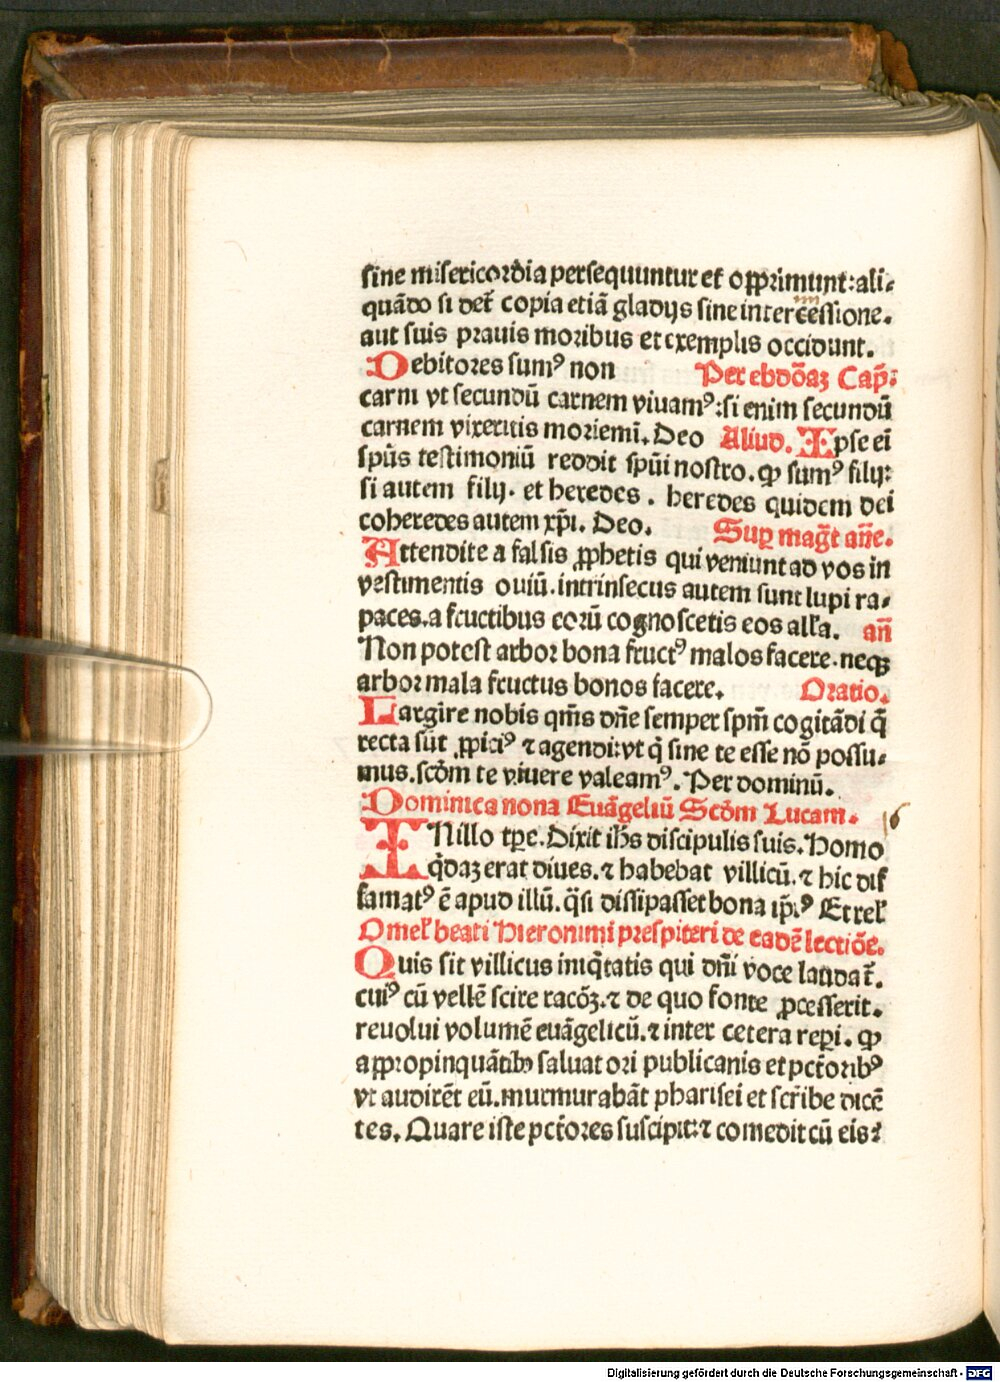 sine misericordia persequuntur et opprimunt: ali⸗
quādo si det̄ copia etiā gladijs sine intercēssione.
aut suis prauis moribus et exemplis occidunt.
Debitores sumꝰ non Per ebdōaꝫ Cap̄:
carni vt secundū carnem viuamꝰ: si enim secundū
carnem vixeritis moriemī. Deo Aliud. Ipse eī
spūs testimoniū reddit spūi nostro. ꝙ sumꝰ filij:
si autem filij. et heredes. heredes quidem dei
coheredes autem xp̄i. Deo. Suꝑ maḡt an̄e.
Attendite a falsis ꝓphetis qui veniunt ad vos in
vestimentis ouiū. intrinsecus autem sunt lupi ra⸗
paces. a fructibus eorū cognoscetis eos all̄a. an̄
Non potest arbor bona fructꝰ malos facere. neqꝫ
arbor mala fructus bonos facere. Oratio.
Largire nobis qm̄s dn̄e semper spm̄ cogitādi q̄
recta sūt ꝓpiciꝰ ⁊ agendi: vt q̇ sine te esse nō possu⸗
mus. scd̄m te viuere valeamꝰ. Per dominū.
Dominica nona Euāgeliū Scd̄m Lucam.
IN illo tꝑe. Dixit ih̄s discipulis suis. Homo
q̇daꝫ erat diues. ⁊ habebat villicū. ⁊ hic dif
famatꝰ ē apud illū. q̄si dissipasset bona ip̄iꝰ Et rel̄
Omel̄ beati Hieronimi prespiteri de eadē lectiōe.
Quis sit villicus iniq̇tatis qui dn̄i voce laudat̄.
cuiꝰ cū vellē scire racōꝫ. ⁊ de quo fonte ꝓcesserit.
reuolui volumē euāgelicū. ⁊ inter cetera reꝑi. ꝙ
appropinquātibꝰ saluatori publicanis et pctōribꝰ
vt audirēt eū. murmurabāt pharisei et scribe dicē
tes. Quare iste pctōres suscipit: ⁊ comedit cū eis?
6
Digitalisierung gefördert durch die Deutsche Forschungsgemeinschaft - DFG